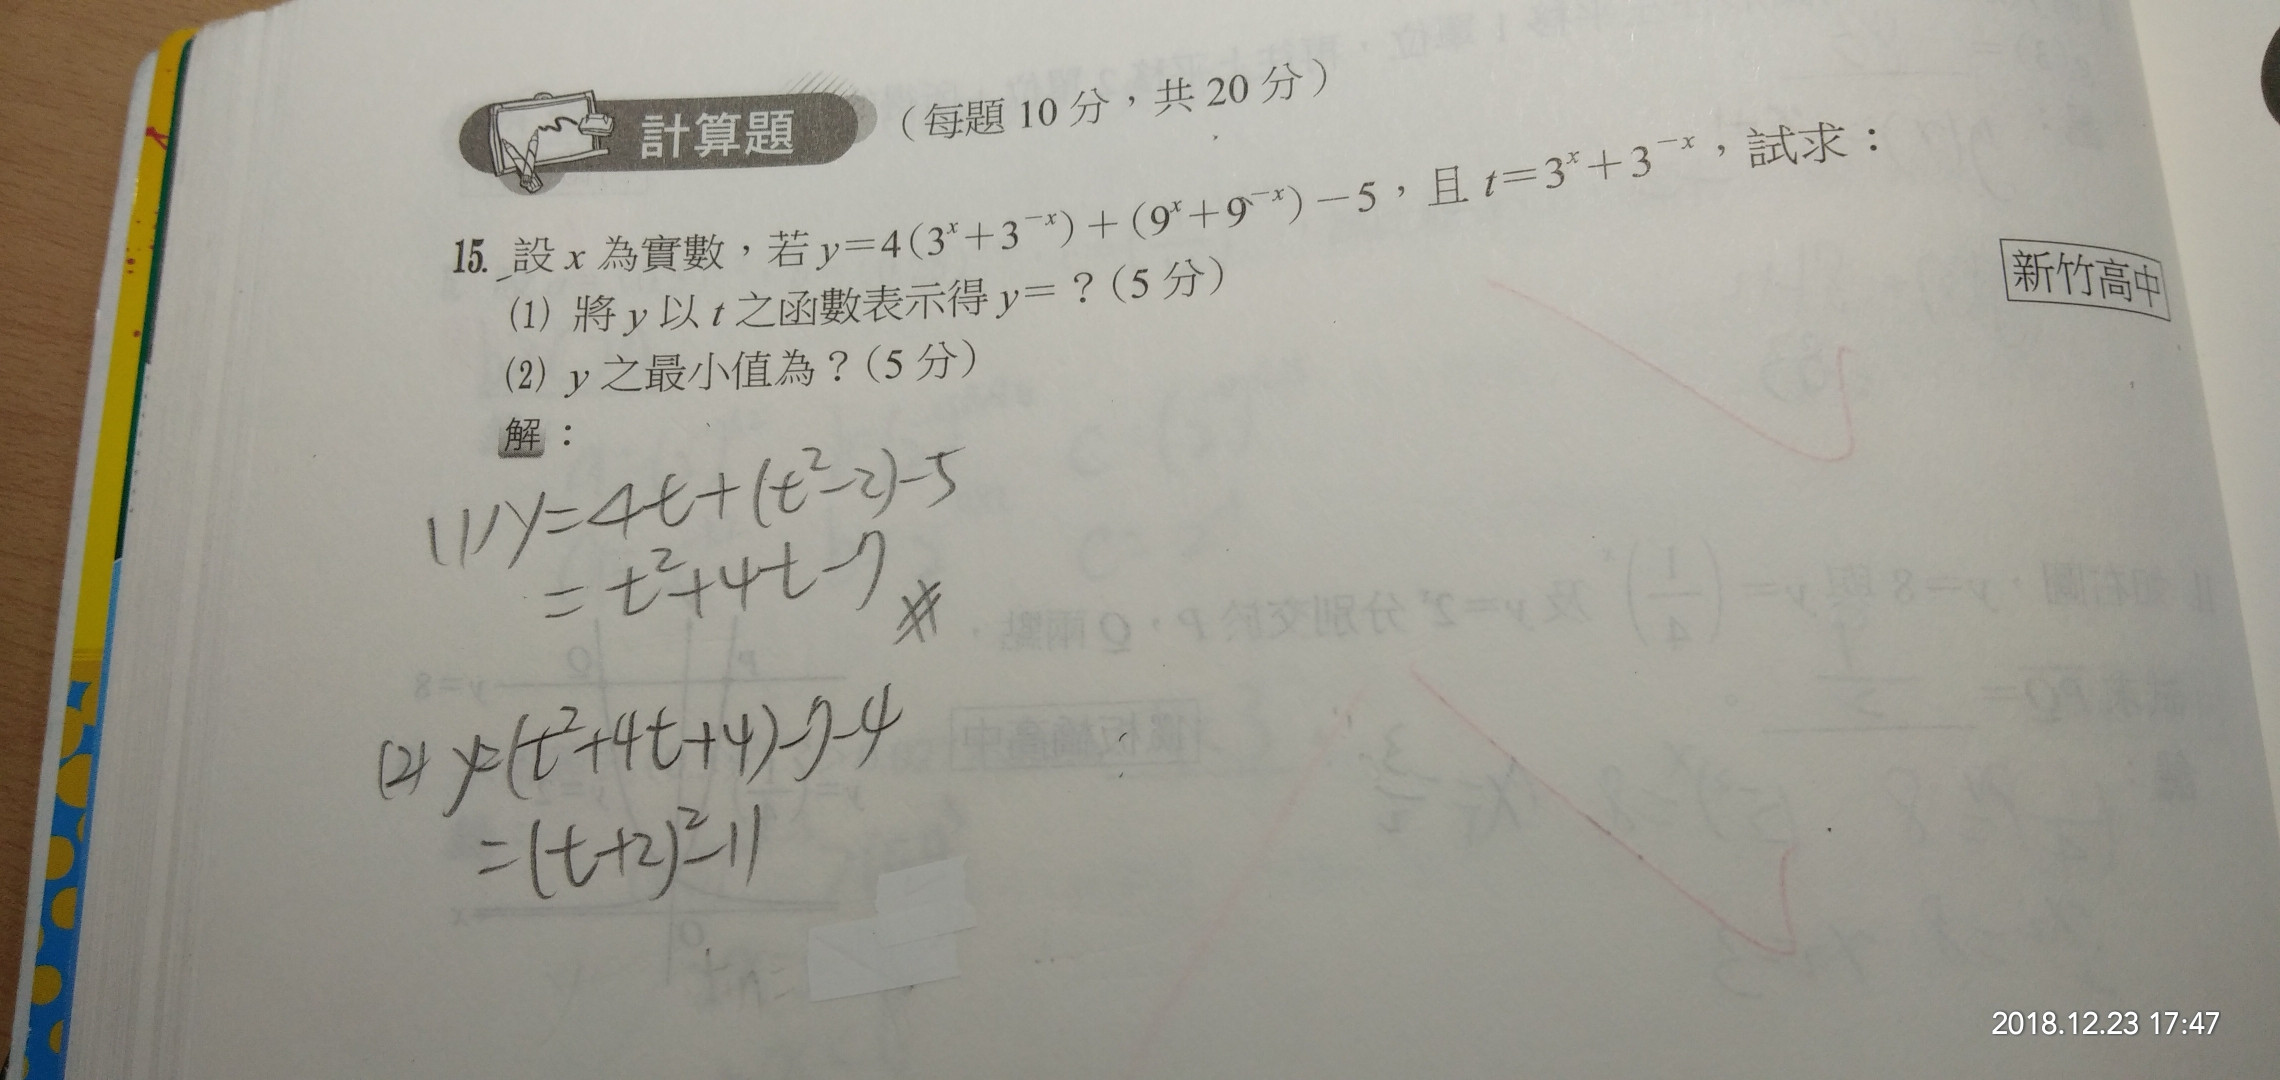 計算題 （每題 10 分，共 20 分）
15. 設 x 為實數，若 y＝4(3ˣ＋3⁻ˣ)＋(9ˣ＋9⁻ˣ)－5，且 t＝3ˣ＋3⁻ˣ，試求：
新竹高中
(1) 將 y 以 t 之函數表示得 y＝？(5 分)
(2) y 之最小值為？(5 分)
解：
(1) y=4t+(t²-2)-5
=t²+4t-7
(2) y=(t²+4t+4)-7-4
=(t+2)²-11
2018.12.23 17:47